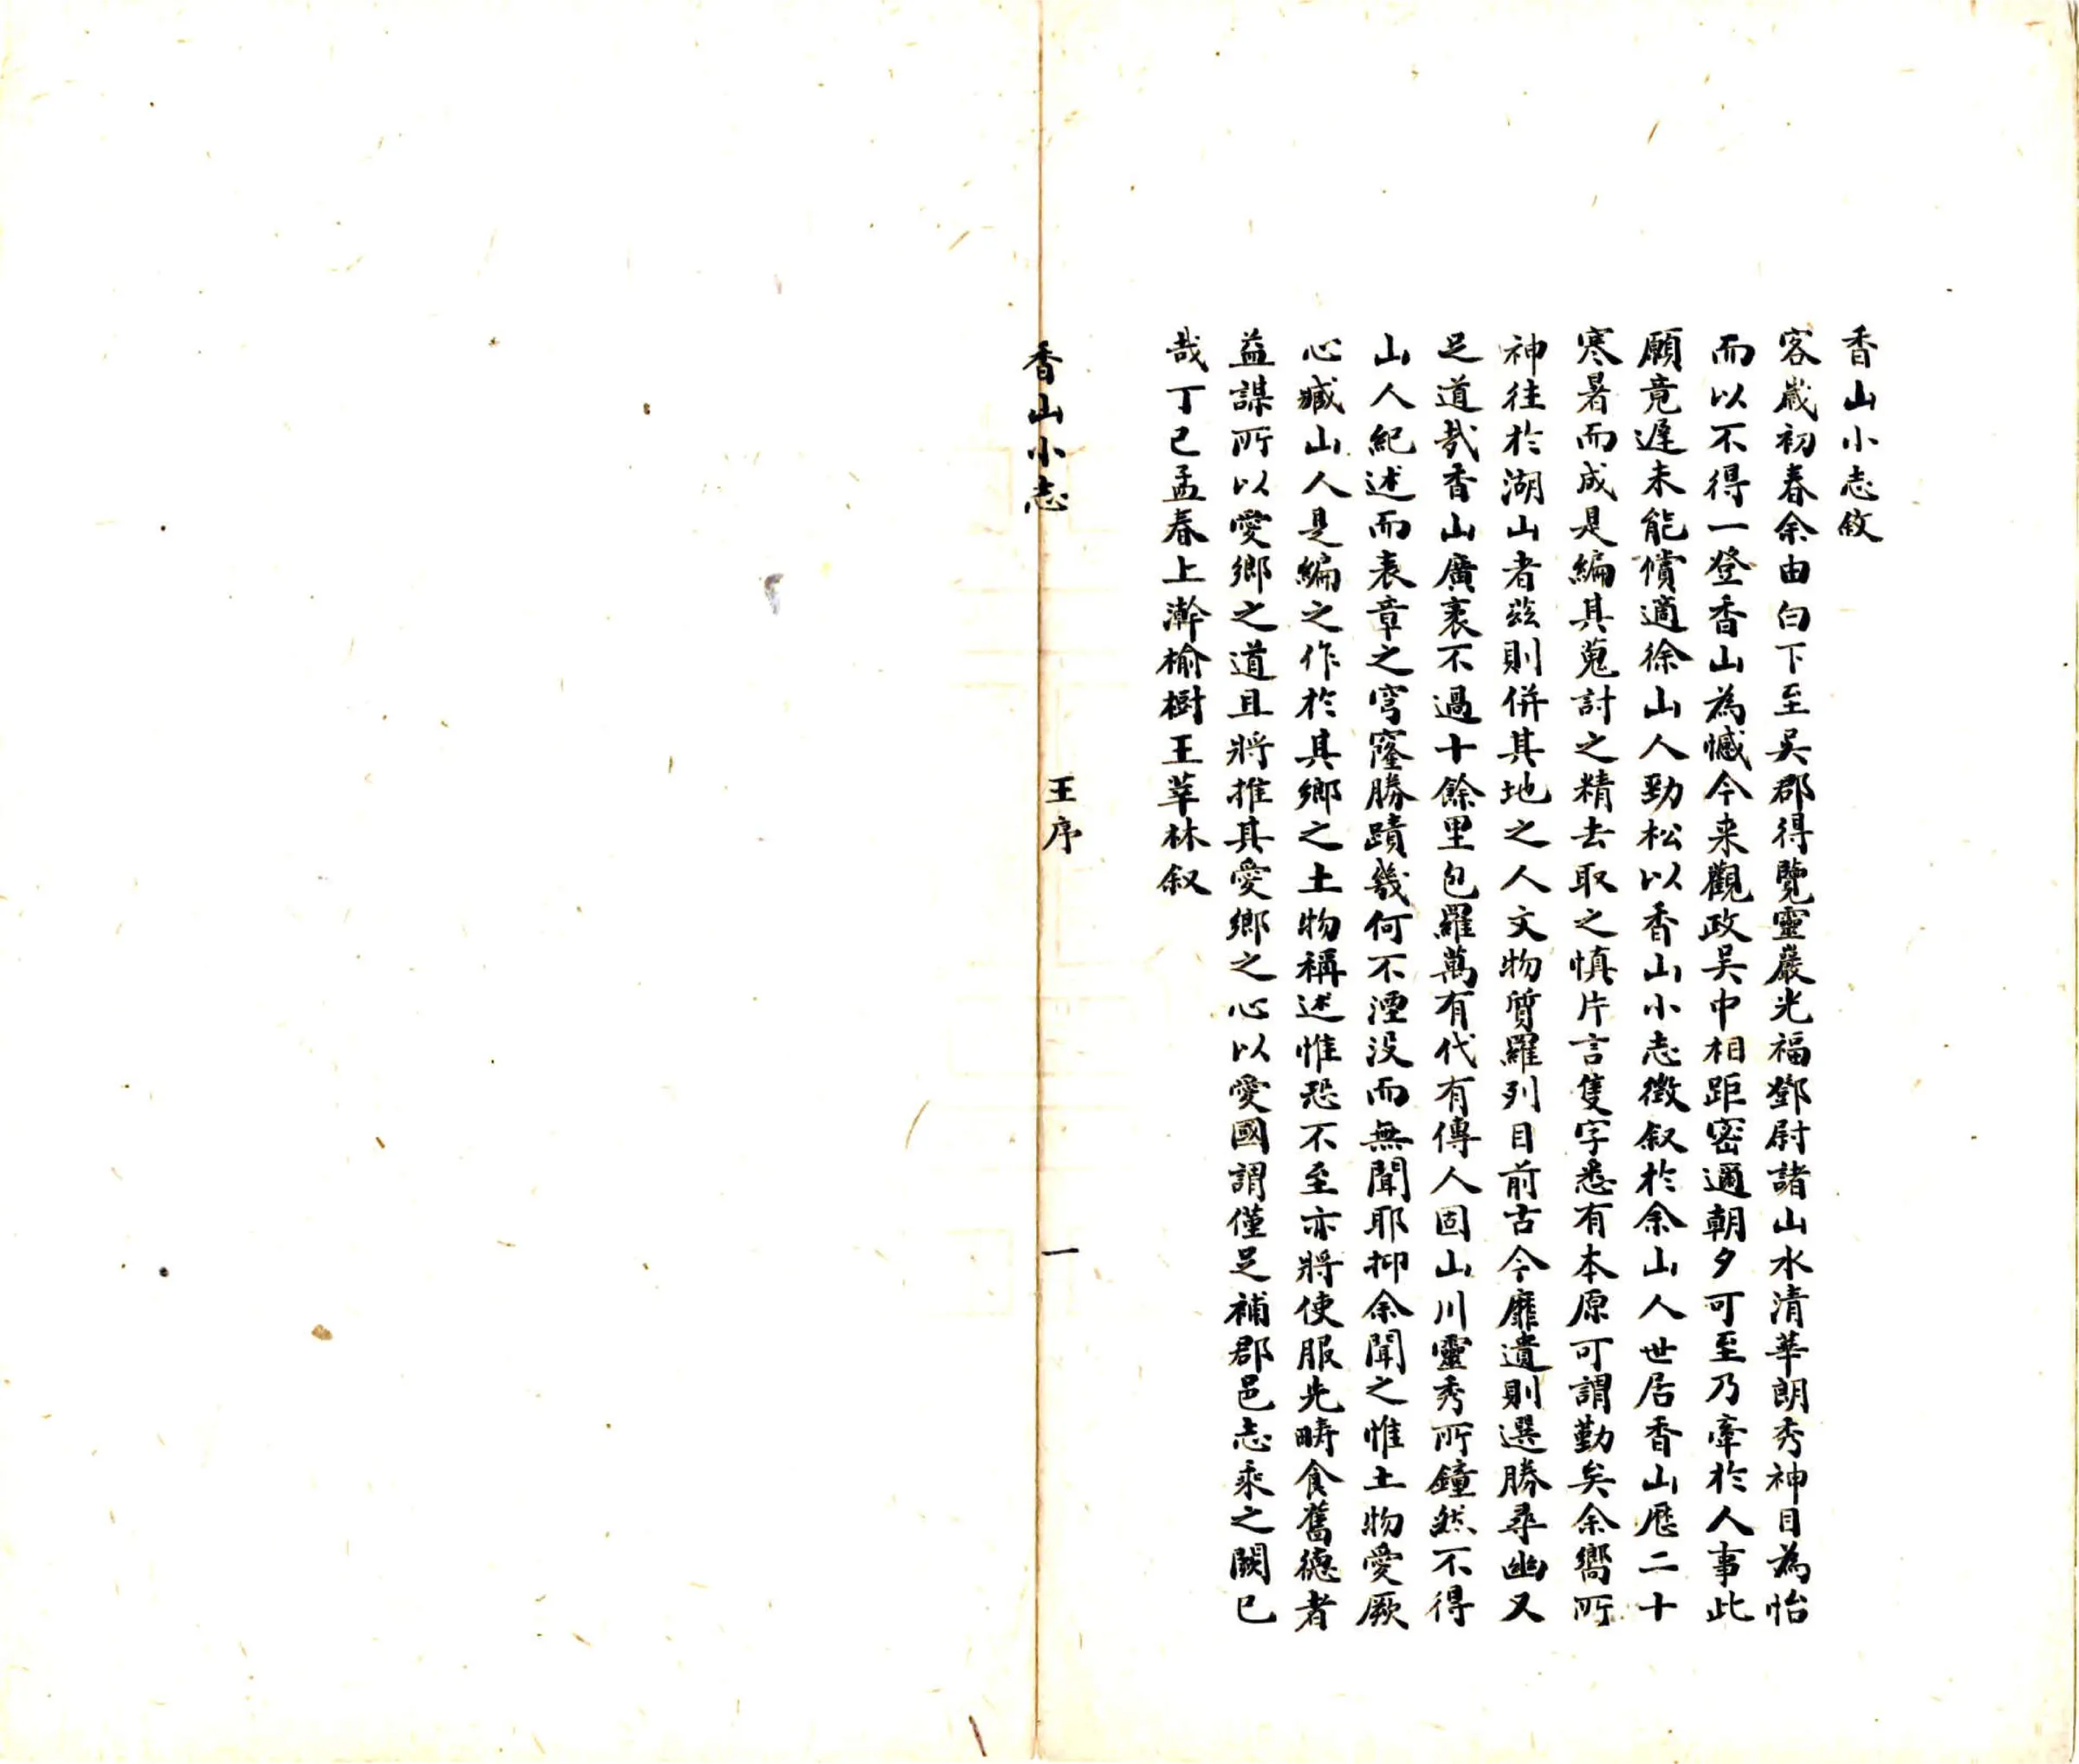 香山小志敘
客歲初春余由白下至吳郡得覽靈巖光福鄧尉諸山水清華朗秀神目為怡
而以不得一登香山為憾今来觀政吳中相距密邇朝夕可至乃牽於人事此
願竟遲未能償適徐山人勁松以香山小志徵叙於余山人世居香山歷二十
寒暑而成是編其蒐討之精去取之慎片言隻字悉有本原可謂勤矣余嚮所
神往於湖山者玆則併其地之人文物質羅列目前古今靡遺則選勝尋幽又
足道哉香山廣袤不過十餘里包羅萬有代有傳人固山川靈秀所鐘然不得
山人紀述而表章之穹窿勝蹟幾何不湮没而無聞耶抑余聞之惟土物愛厥
心臧山人是編之作於其鄉之土物稱述惟恐不至亦將使服先疇食舊德者
益謀所以愛鄉之道且將推其愛鄉之心以愛國謂僅足補郡邑志乘之闕已
哉丁巳孟春上澣榆樹王莘林叙
香山小志
王序
一